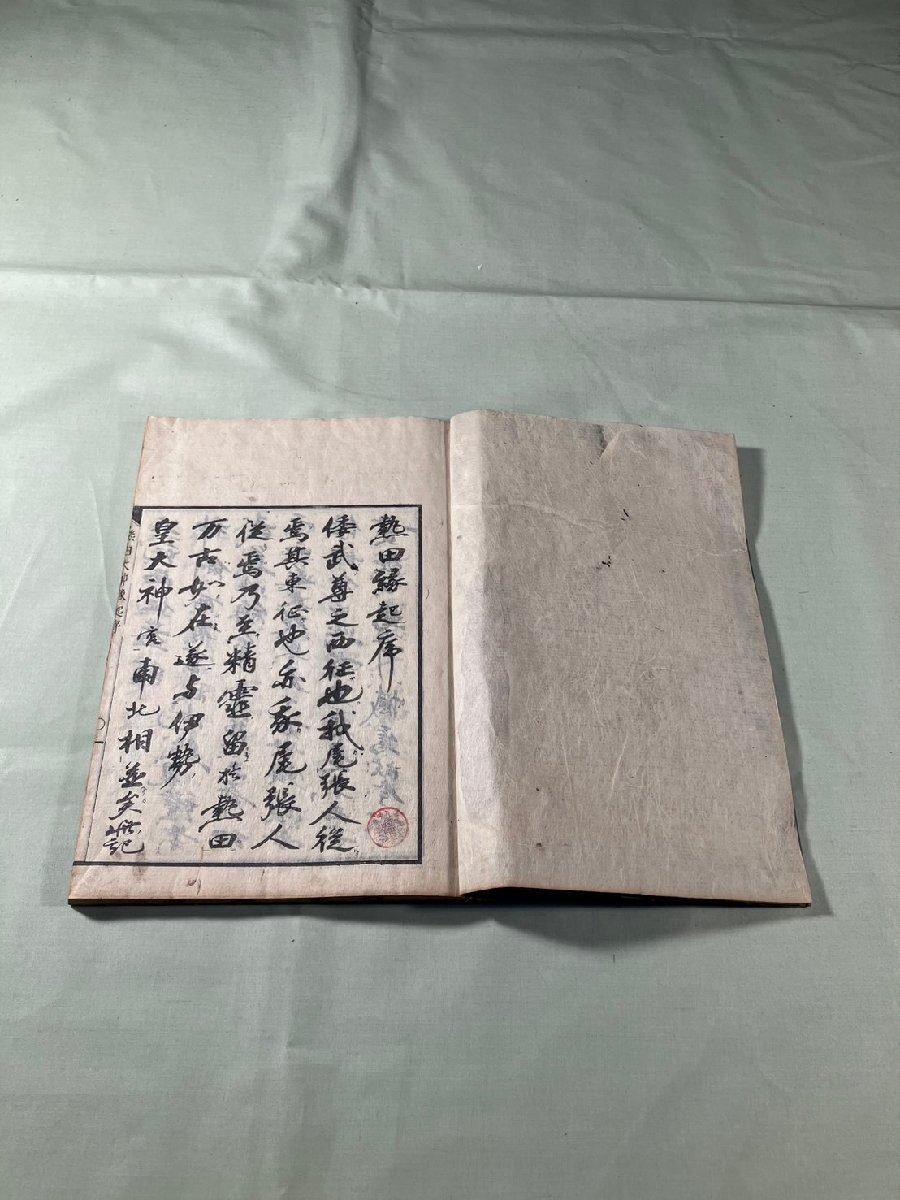 熱田縁起序
倭武尊之西征也我尾張人従
焉其東征也亦我尾張人
従焉乃至精霊留於熱田
万古如在遂与伊勢
皇大神宮南北相並矣